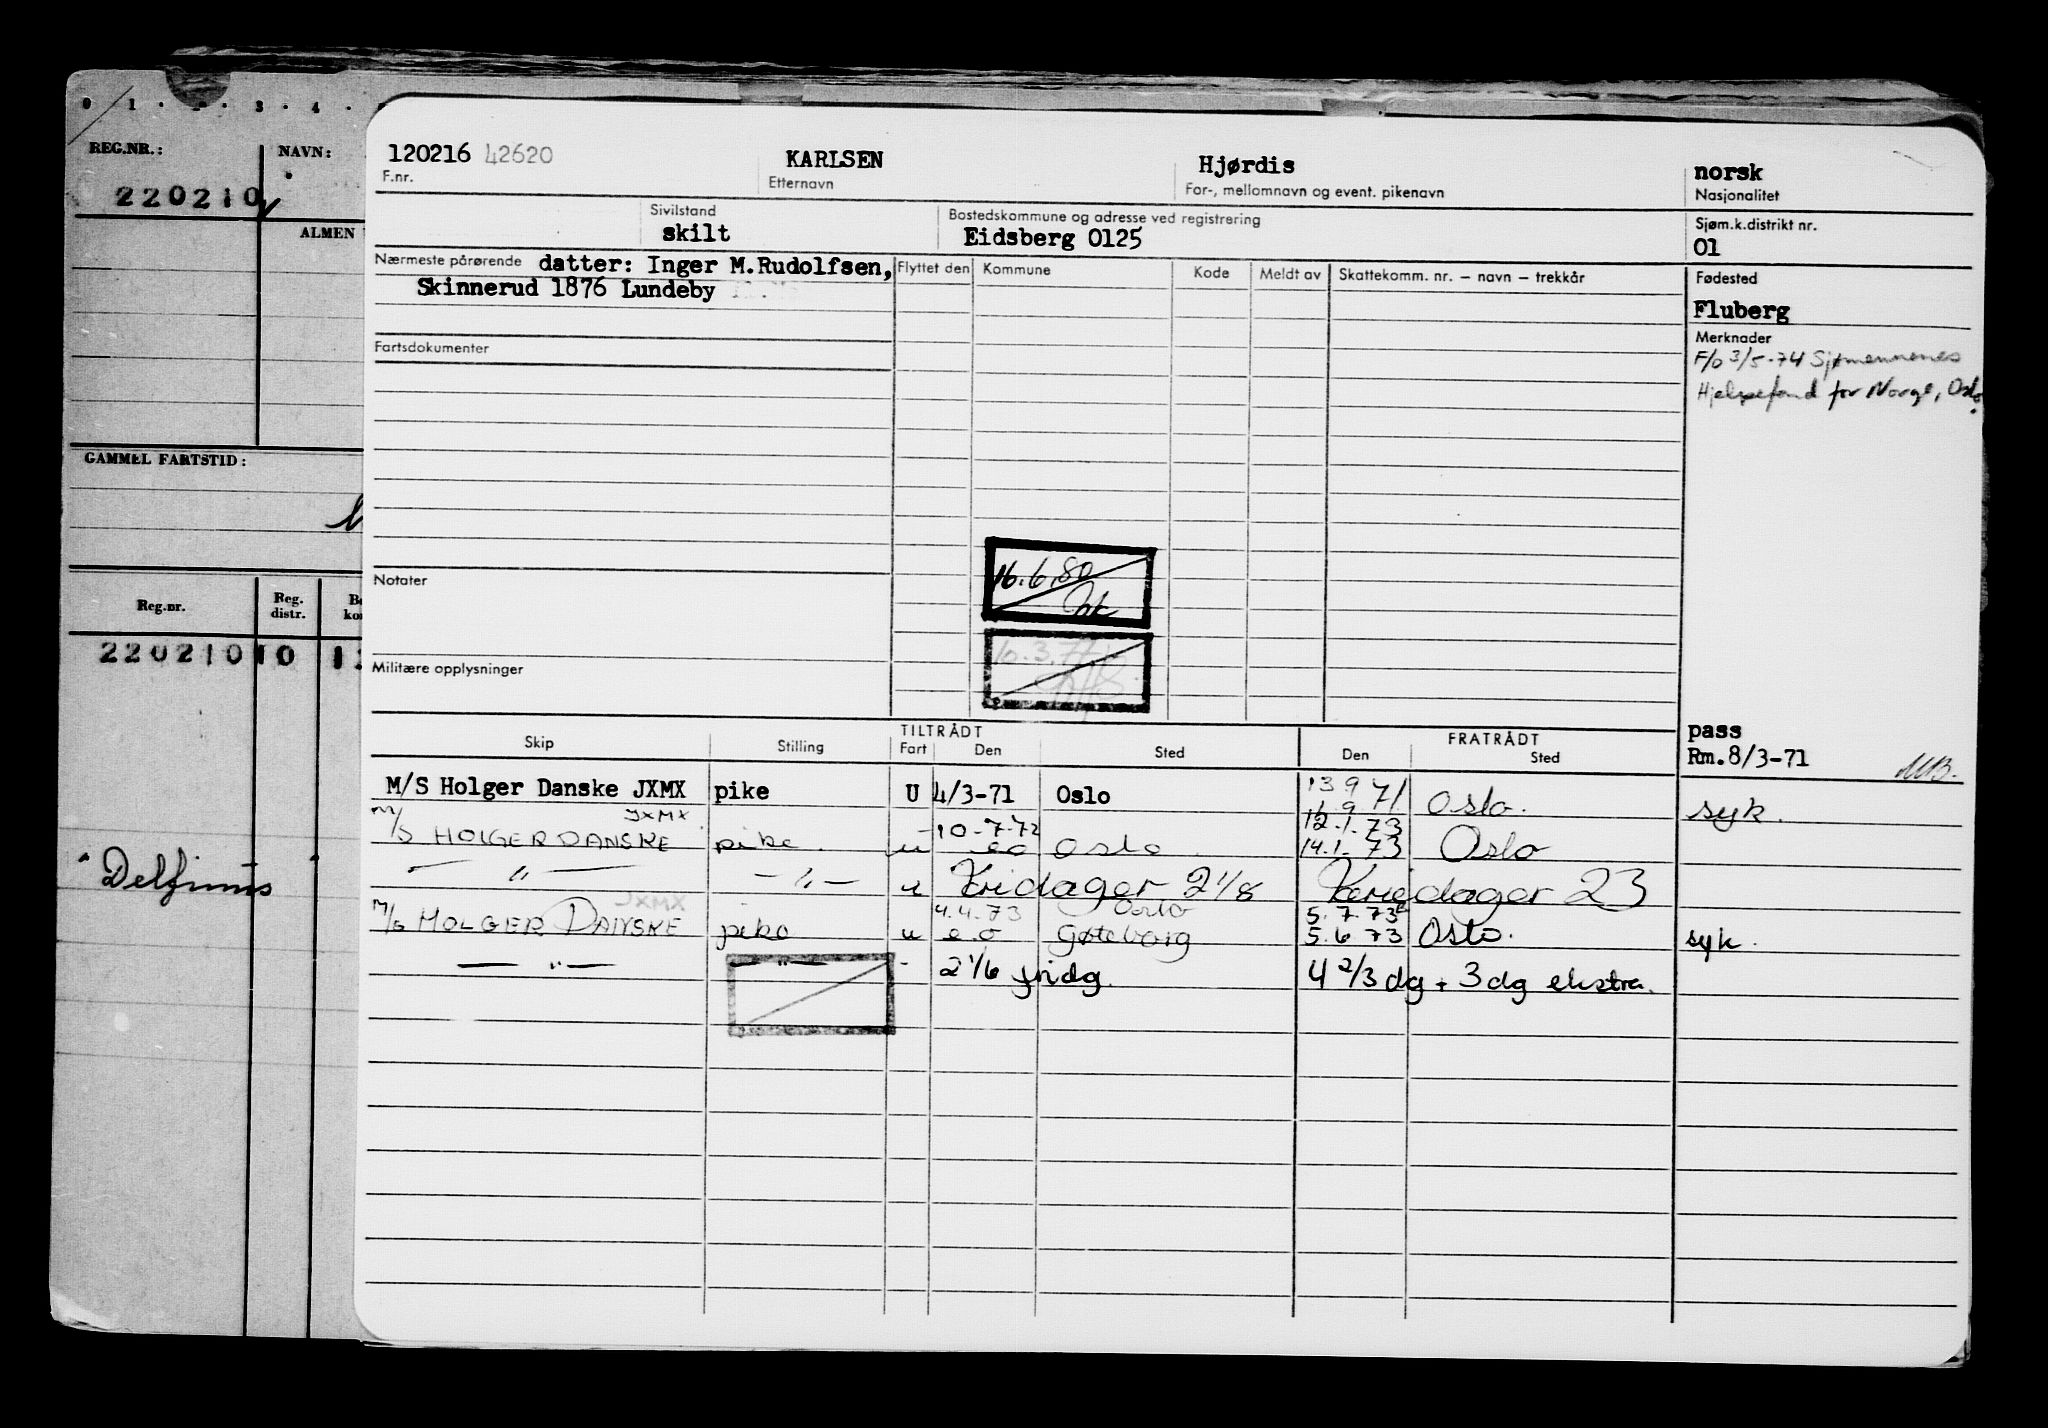 0 1 3 4
REG.NR.:
NAVN:
220210
ALMEN
GAMMEL FARTSTID:
Reg.nr.
Reg. distr.
220210 10
"Delfinus"
120216 42620
F.nr.
KARLSEN
Etternavn
Hjørdis
For-, mellomnavn og event. pikenavn
norsk
Nasjonalitet
Sivilstand
skilt
Bostedskommune og adresse ved registrering
Eidsberg 0125
Sjøm.k.distrikt nr.
01
Nærmeste pårørende datter: Inger M.Rudolfsen,
Skinnerud 1876 Lundeby
Flyttet den
Kommune
Kode
Meldt av
Skattekomm. nr. – navn – trekkår
Fødested
Fluberg
Merknader
F/o 3/5-74 Sjømennenes
Hjelpefond for Norge, Oslo.
Fartsdokumenter
16.6.80
Notater
10.3.77
Militære opplysninger
TILTRÅDT
FRATRÅDT
Skip
Stilling
Fart
Den
Sted
Den
Sted
pass
Rm.8/3-71
M/S Holger Danske JXMX pike U 4/3-71 Oslo 13 9 71 Oslo. syk.
JXMX 10-7-72 12.1.73
M/S HOLGER DANSKE pike. u eo Oslo 14.1.73 Oslo
— " — — " — u Fridager 21/8 Feriedager 23
JXMX 4.4.73 Oslo 5.7.73
M/S HOLGER DANSKE pike u e.o Gøteborg 5.6 73 Oslo. syk.
— " — — " — - 2 1/6 fridg. 4 2/3 dg + 3 dg ekstra.